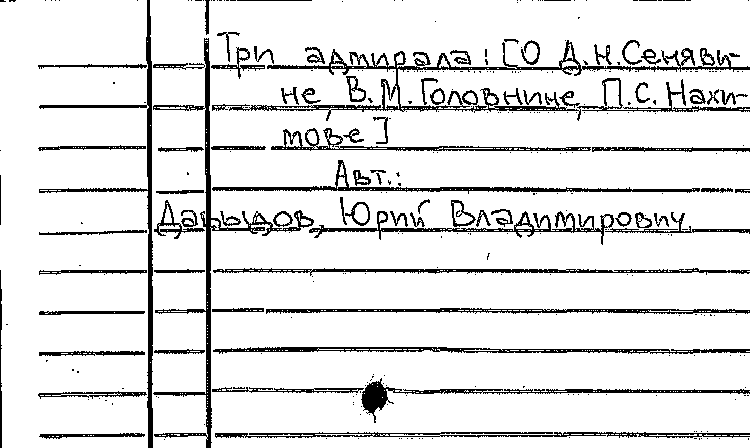 Три адмирала: [О Д.Н.Сеняви-
не, В.М.Головнине, П.С.Нахи-
мове]
Авт.:
Давыдов, Юрий Владимирович.